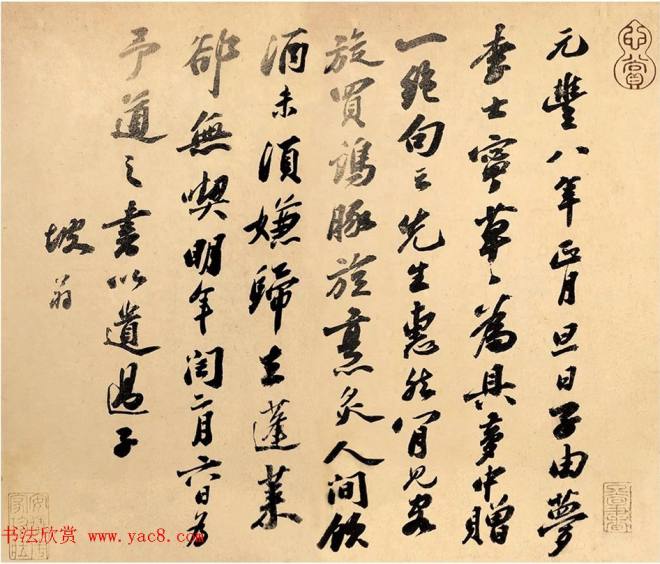 元豐八年正月旦日子由夢
李士寧草〻為具夢中贈
一絕句云先生惠然肯見客
旋買鷄豚旋烹炙人間飲
酒未須嫌歸去蓬萊
卻無喫明年閏二月六日為
予道之書以遺過子
坡翁
心賞
书法欣赏 www.yac8.com